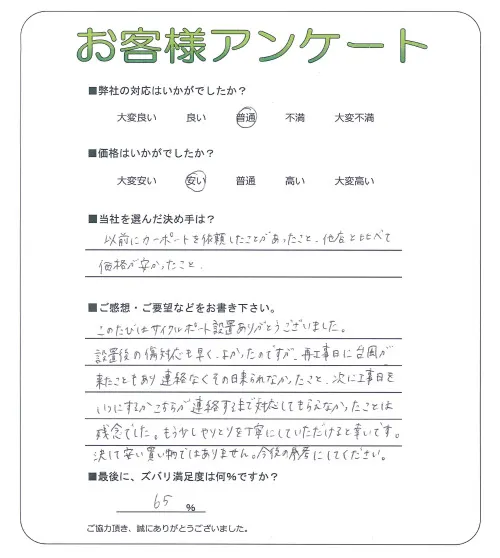 お客様アンケート
■弊社の対応はいかがでしたか？
大変良い 良い 普通 不満 大変不満
■価格はいかがでしたか？
大変安い 安い 普通 高い 大変高い
■当社を選んだ決め手は？
以前にカーポートを依頼したことがあったこと、他店と比べて
価格が安かったこと、
■ご感想・ご要望などをお書き下さい。
このたびはサイクルポート設置ありがとうございました。
設置後の傷対応も早く、よかったのですが、再工事日に台風が
来たこともあり連絡なくその日来られなかったこと、次に工事日を
いつにするかこちらが連絡するまで対応してもらえなかったことは
残念でした。もう少しやりとりを丁寧にしていただけると幸いです。
決して安い買い物ではありません。今後の参考にしてください。
■最後に、ズバリ満足度は何％ですか？
65 ％
ご協力頂き、誠にありがとうございました。